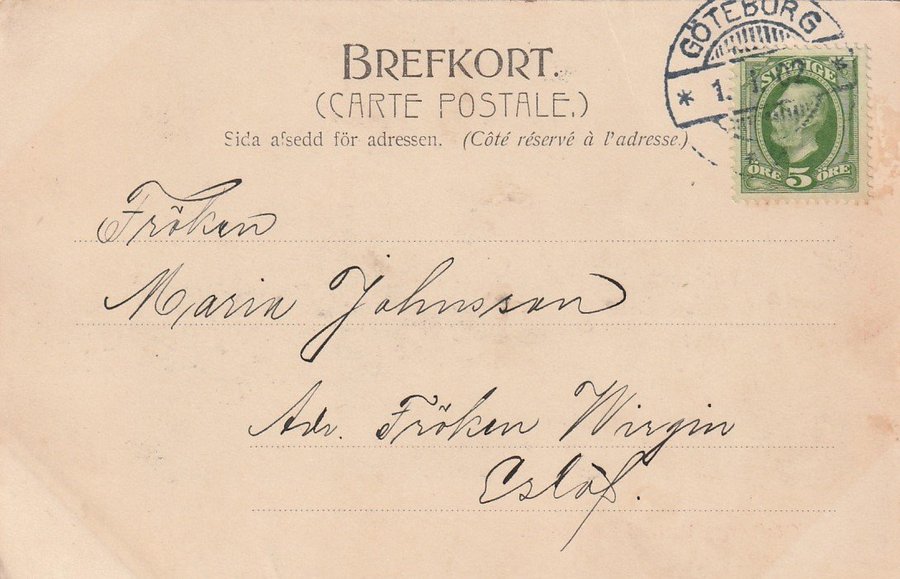 BREFKORT.
(CARTE POSTALE.)
Sida afsedd för adressen. (Côté réservé à l'adresse.)
GÖTEBORG
* 1. 1. *
SVERIGE
ÖRE 5 ÖRE
Fröken
Maria Johnsson
Adr. Fröken Wirgin
Eslöf.